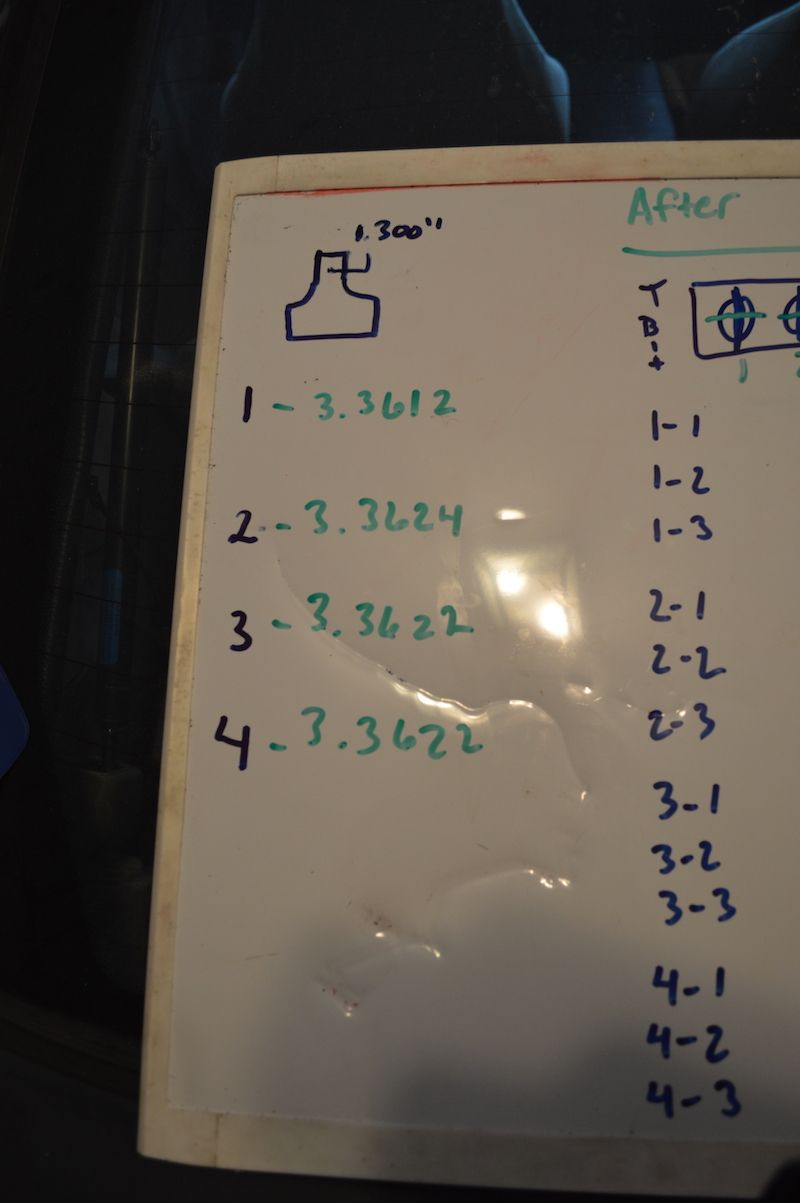 1.300"
1 - 3.3612
2 - 3.3624
3 - 3.3622
4 - 3.3622
After
T
B
1
1-1
1-2
1-3
2-1
2-2
2-3
3-1
3-2
3-3
4-1
4-2
4-3